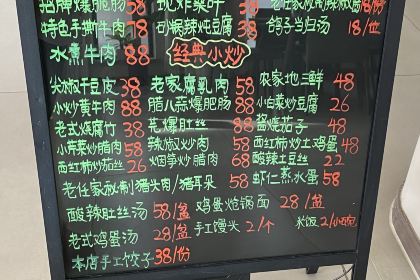 招牌爆脆肠 58 现炸菜叶 38 老任家秘制辣椒酱 18/份
特色手撕牛肉 78 砂锅辣炖豆腐 38 鸽子当归汤 18/位
水煮牛肉 88 经典小炒
尖椒干豆皮 38 老家腐乳肉 58 农家地三鲜 48
小炒黄牛肉 88 腊八蒜爆肥肠 88 小白菜炒豆腐 26
老式烧腐竹 38 芫爆肚丝 88 酱烧茄子 48
小芹菜炒腊肉 58 辣椒炒肉 58 西红柿炒土鸡蛋 48
西红柿炒茄丝 26 烟笋炒腊肉 68 酸辣土豆丝 22
老任家秘制猪头肉/猪耳朵 58 虾仁蒸水蛋 58
酸辣肚丝汤 58/盆 鸡蛋炝锅面 28/盆
老式鸡蛋汤 28/盆 手工馒头 2/个 米饭 2/小碗
本店手工饺子 38/份